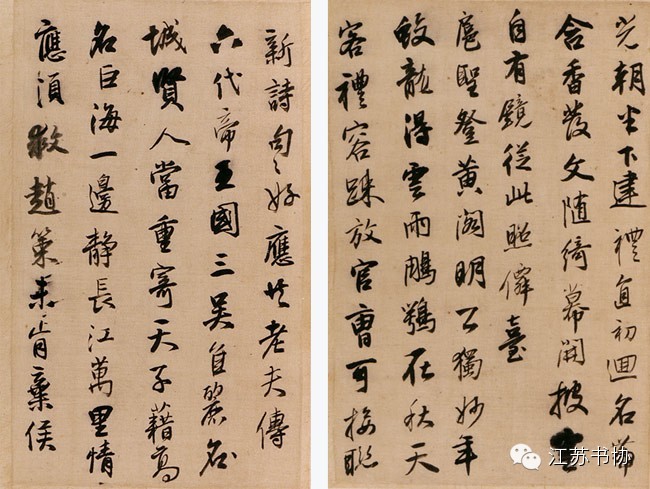 光朝半下建禮直初迴名帶
含香發文隨綺幕開披雲
自有鏡從此照僊臺
扈聖登黃閣明公獨妙年
蛟龍得雲雨鵰鶚在秋天
客禮容踈放官曹可接聯
新詩句〻好應任老夫傳
六代帝王國三吳自麗名
城賢人當重寄天子藉高
名巨海一邊靜長江萬里情
應須救趙策未肯棄侯
江苏书协